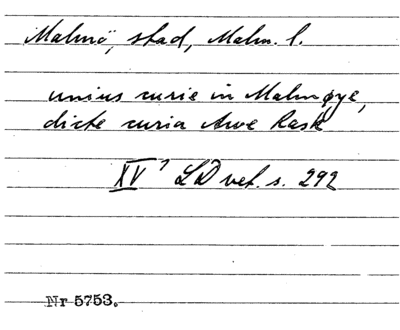 Malmö, stad, Malm. l.
unius curie in Malmøye,
dicte curia Awe Rask
XV 1 LD vet. s. 292
Nr 5753.